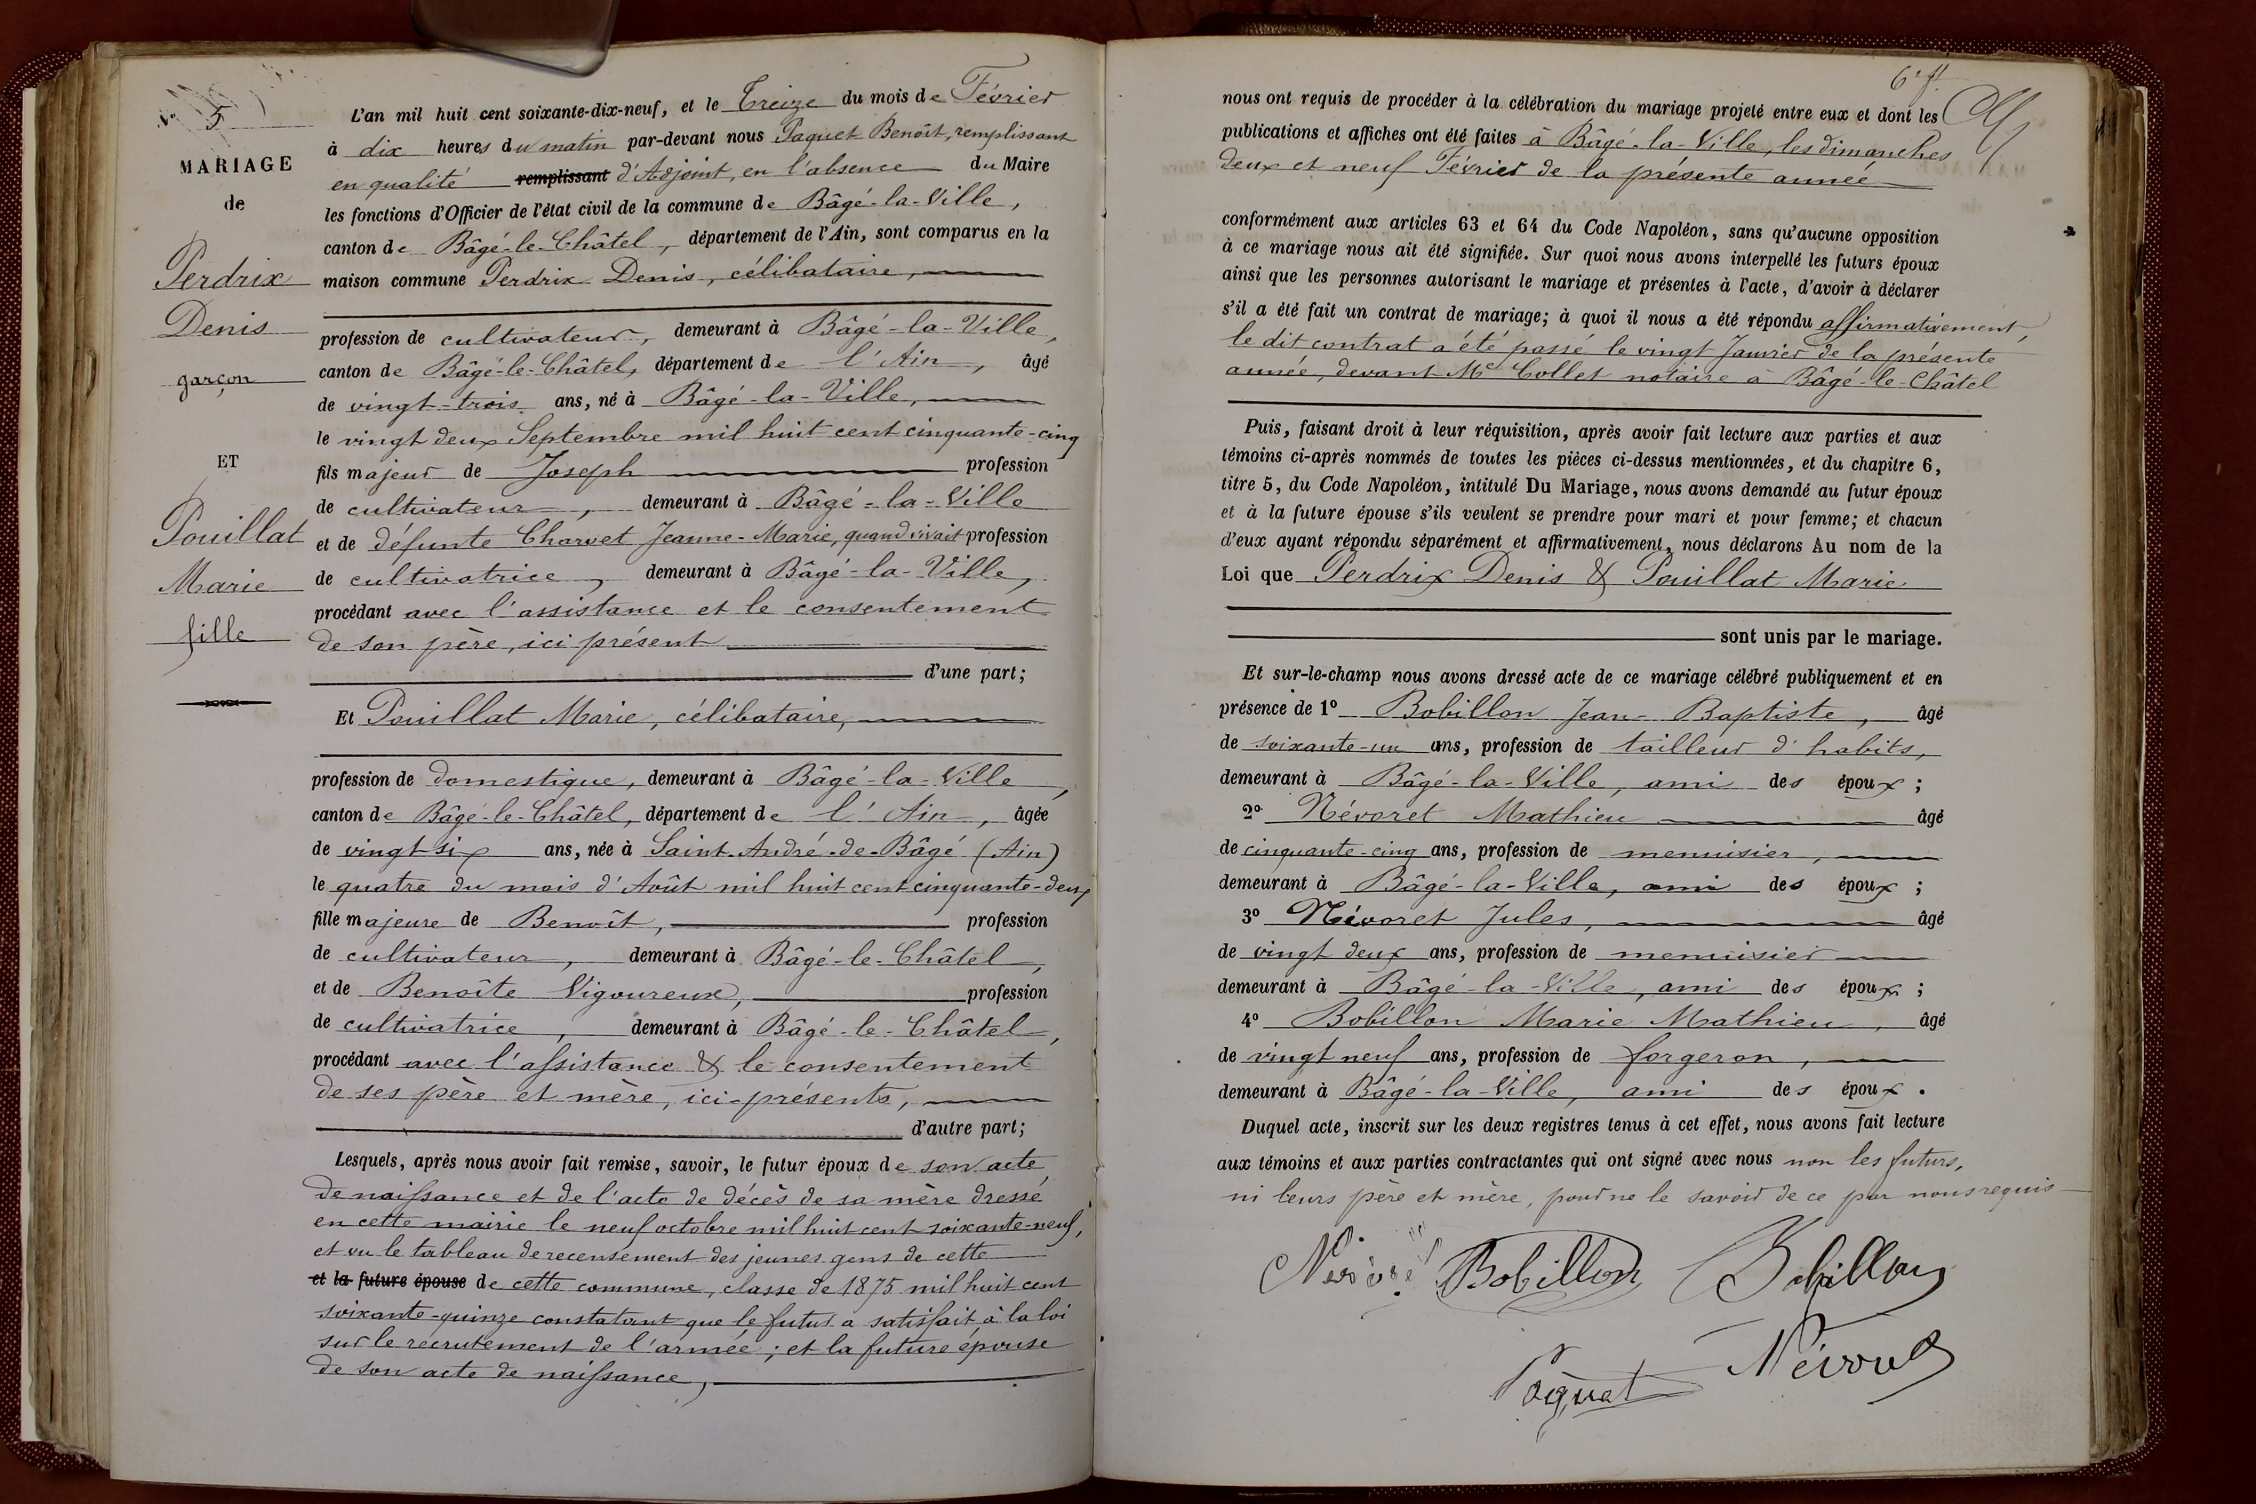 N° 5
MARIAGE
de
Perdrix
Denis
garçon
ET
Pouillat
Marie
fille
L'an mil huit cent soixante-dix-neuf, et le Treize du mois de Février
à dix heures du matin par-devant nous Paquet Benoît, remplissant
en qualité remplissant d'Adjoint, en l'absence du Maire
les fonctions d'Officier de l'état civil de la commune de Bâgé-la-Ville,
canton de Bâgé-le-Châtel, département de l'Ain, sont comparus en la
maison commune Perdrix Denis, célibataire,
profession de cultivateur, demeurant à Bâgé-la-Ville,
canton de Bâgé-le-Châtel, département de l'Ain, âgé
de vingt-trois ans, né à Bâgé-la-Ville,
le vingt deux Septembre mil huit cent cinquante-cinq
fils majeur de Joseph profession
de cultivateur, demeurant à Bâgé-la-Ville
et de défunte Charvet Jeanne-Marie, quand vivait profession
de cultivatrice, demeurant à Bâgé-la-Ville,
procédant avec l'assistance et le consentement
de son père, ici présent
d'une part;
Et Pouillat Marie, célibataire,
profession de domestique, demeurant à Bâgé-la-Ville,
canton de Bâgé-le-Châtel, département de l'Ain, âgée
de vingt six ans, née à Saint-André-de-Bâgé (Ain)
le quatre du mois d'Août mil huit cent cinquante-deux
fille majeure de Benoît, profession
de cultivateur, demeurant à Bâgé-le-Châtel,
et de Benoîte Vigoureux, profession
de cultivatrice, demeurant à Bâgé-le-Châtel,
procédant avec l'assistance & le consentement
de ses père et mère, ici-présents,
d'autre part;
Lesquels, après nous avoir fait remise, savoir, le futur époux de son acte
de naissance et de l'acte de décès de sa mère dressé
en cette mairie le neuf octobre mil huit cent soixante-neuf,
et vu le tableau de recensement des jeunes gens de cette
et la future épouse de cette commune, classe de 1875 mil huit cent
soixante-quinze constatant que le futur a satisfait à la loi
sur le recrutement de l'armée; et la future épouse
de son acte de naissance,
6e ft
nous ont requis de procéder à la célébration du mariage projeté entre eux et dont les
publications et affiches ont été faites à Bâgé-la-Ville, les dimanches
deux et neuf Février de la présente année
conformément aux articles 63 et 64 du Code Napoléon, sans qu'aucune opposition
à ce mariage nous ait été signifiée. Sur quoi nous avons interpellé les futurs époux
ainsi que les personnes autorisant le mariage et présentes à l'acte, d'avoir à déclarer
s'il a été fait un contrat de mariage; à quoi il nous a été répondu affirmativement,
le dit contrat a été passé le vingt Janvier de la présente
année, devant Me Collet notaire à Bâgé-le-Châtel
Puis, faisant droit à leur réquisition, après avoir fait lecture aux parties et aux
témoins ci-après nommés de toutes les pièces ci-dessus mentionnées, et du chapitre 6,
titre 5, du Code Napoléon, intitulé Du Mariage, nous avons demandé au futur époux
et à la future épouse s'ils veulent se prendre pour mari et pour femme; et chacun
d'eux ayant répondu séparément et affirmativement, nous déclarons Au nom de la
Loi que Perdrix Denis & Pouillat Marie
sont unis par le mariage.
Et sur-le-champ nous avons dressé acte de ce mariage célébré publiquement et en
présence de 1° Bobillon Jean-Baptiste, âgé
de soixante-un ans, profession de tailleur d'habits,
demeurant à Bâgé-la-Ville, ami des époux;
2° Névoret Mathieu âgé
de cinquante-cinq ans, profession de menuisier,
demeurant à Bâgé-la-Ville, ami des époux;
3° Névoret Jules, âgé
de vingt deux ans, profession de menuisier
demeurant à Bâgé-la-Ville, ami des époux;
4° Bobillon Marie Mathieu, âgé
de vingt neuf ans, profession de forgeron,
demeurant à Bâgé-la-Ville, ami des époux.
Duquel acte, inscrit sur les deux registres tenus à cet effet, nous avons fait lecture
aux témoins et aux parties contractantes qui ont signé avec nous non les futurs,
ni leurs père et mère, pour ne le savoir de ce par nous requis
Bobillon Bobillon
Paquet